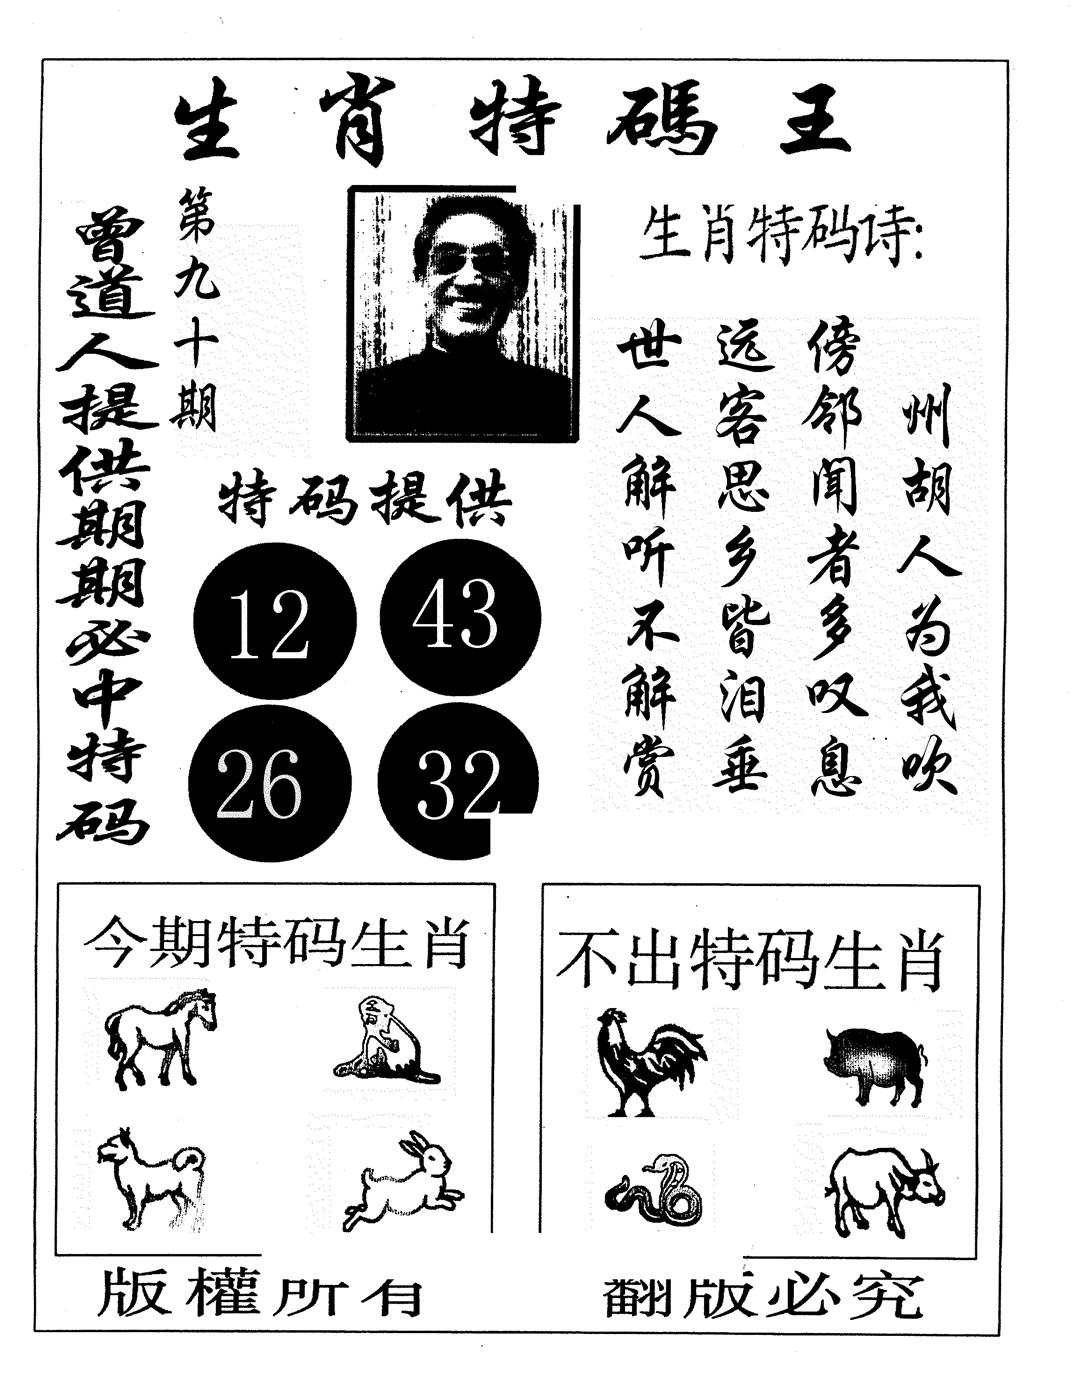 生肖特碼王
曾道人提供期期必中特码
第九十期
生肖特码诗:
州胡人为我吹
傍邻闻者多叹息
远客思乡皆泪垂
世人解听不解赏
特码提供
12 43
26 32
今期特码生肖
不出特码生肖
版權所有
翻版必究